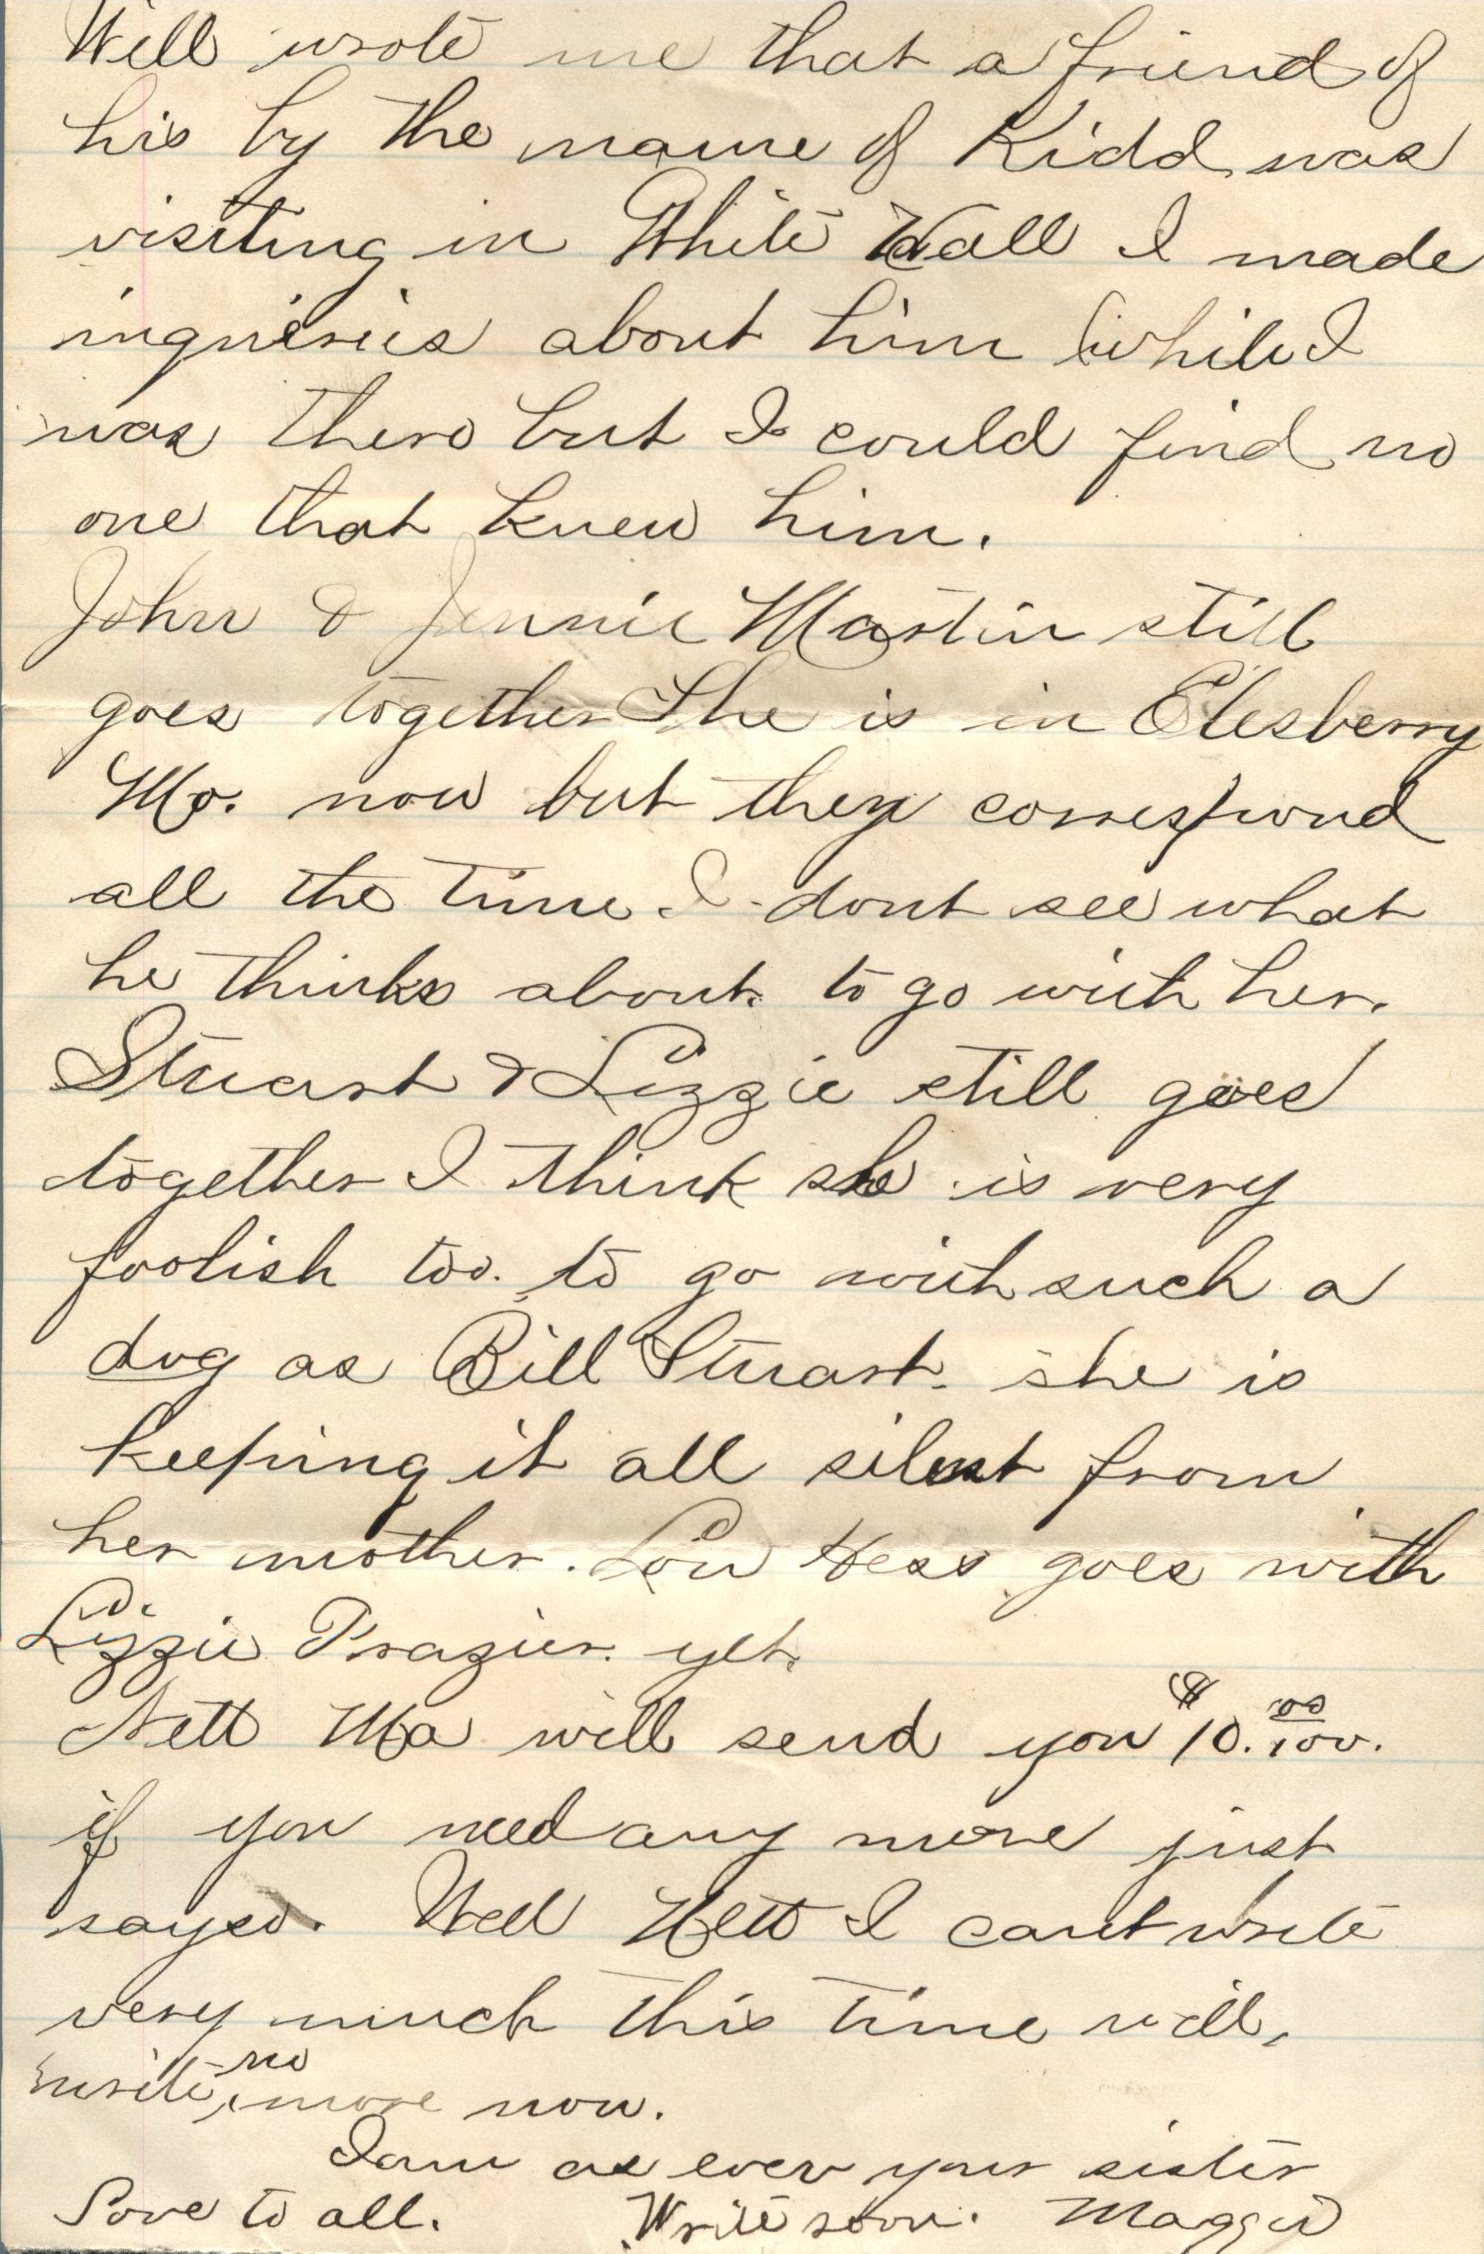 Will wrote me that a friend of
his by the name of Kidd was
visiting in White Hall I made
inquiries about him while I
was there but I could find no
one that knew him.
John & Jennie Martin still
goes together She is in Elesberry
Mo. now but they correspond
all the time I dont see what
he thinks about to go with her.
Stuart & Lizzie still goes
together I think she is very
foolish too. to go with such a
dog as Bill Stuart. she is
keeping it all silent from
her mother. Lou Hess goes with
Lizzie Frazier yet.
Nett Ma will send you $10.00/100.
if you need any more just
say so. Well Nett I cant write
very much this time will,
write, no more now.
I am as ever your sister
Love to all. Write soon. Maggie